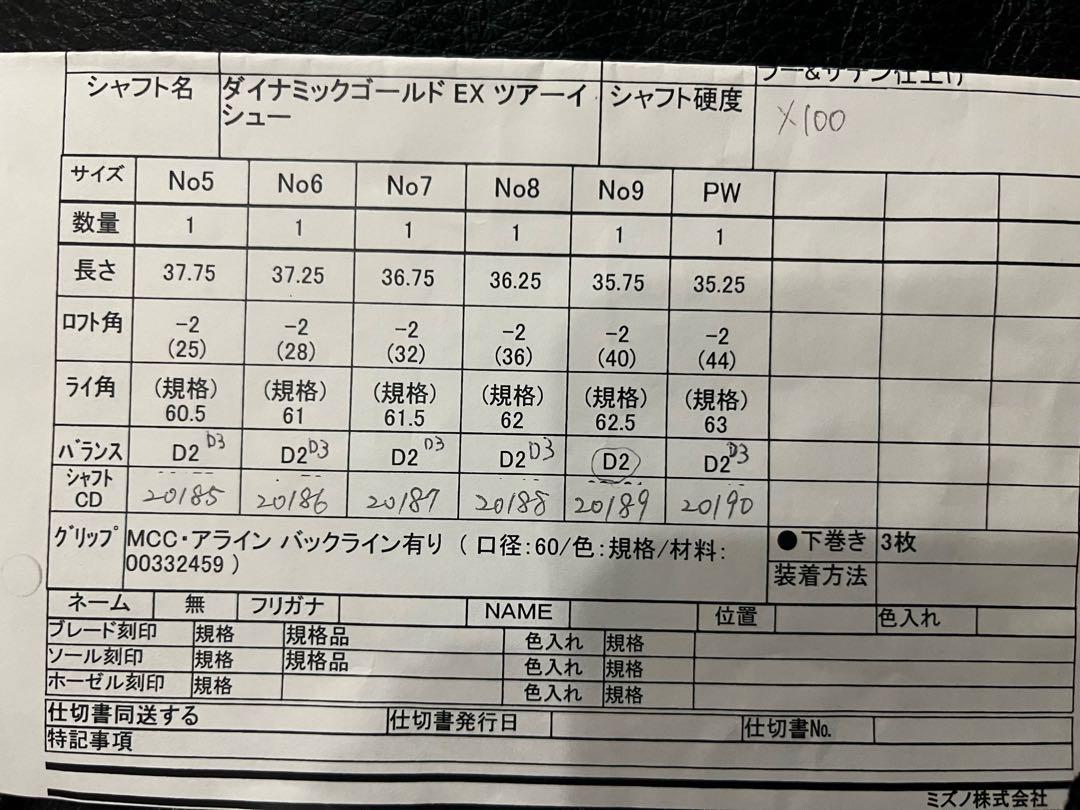 シャフト名 ダイナミックゴールド EX ツアーイ シャフト硬度 X100
シュー
サイズ No5 No6 No7 No8 No9 PW
数量 1 1 1 1 1 1
長さ 37.75 37.25 36.75 36.25 35.75 35.25
ロフト角 -2 -2 -2 -2 -2 -2
(25) (28) (32) (36) (40) (44)
ライ角 (規格) (規格) (規格) (規格) (規格) (規格)
60.5 61 61.5 62 62.5 63
バランス D2 D3 D2 D3 D2 D3 D2 D3 D2 D2 D3
シャフト
CD 20185 20186 20187 20188 20189 20190
グリップ MCC・アライン バックライン有り ( 口径:60/色:規格/材料: ●下巻き 3枚
00332459 ) 装着方法
ネーム 無 フリガナ NAME 位置 色入れ
ブレード刻印 規格 規格品 色入れ 規格
ソール刻印 規格 規格品 色入れ 規格
ホーゼル刻印 規格 色入れ 規格
仕切書同送する 仕切書発行日 仕切書No.
特記事項
ミズノ株式会社